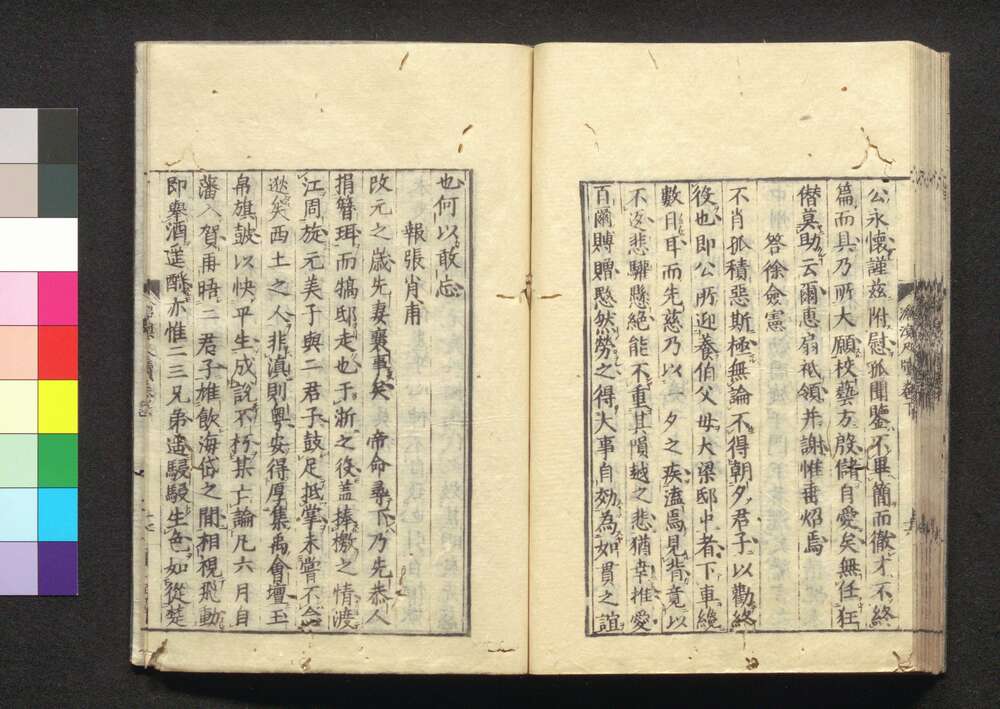 公永懷謹茲附慰孤聞鑒不畢簡而徹才不終
篇而具乃所大願校藝方啟儲自愛矣無任狂
僭莫助云爾惠扇祗領并謝惟甫炤焉
答徐僉憲
不肖孤積惡斯極無論不得朝夕君子以勸終
役也即公所迎養伯父母大梁邸中者下車纔
數月耳而先慈乃以一夕之疾溘焉見背竟以
不返悲驩懸絕能不重其隕越之悲猶幸推愛
百爾賻贈愍然勞之得大事自効為如貫之誼
也何以敢忘
報張肖甫
改元之歲先妻襄事矣帝命尋下乃先恭人
捐簪珥而犒邸走也于浙之役蓋捧檄之情渡
江周旋元美子與二君子鼓足抵掌未嘗不念
逖矣西土之人非滇則粵安得厚集禹會壇玉
帛旗鼓以快平生成說不朽某上論凡六月自
藩入賀再晤二君子雄飲海岱之間相視飛動
即舉酒遥酹亦惟二三兄弟遥駸駸生色如從楚